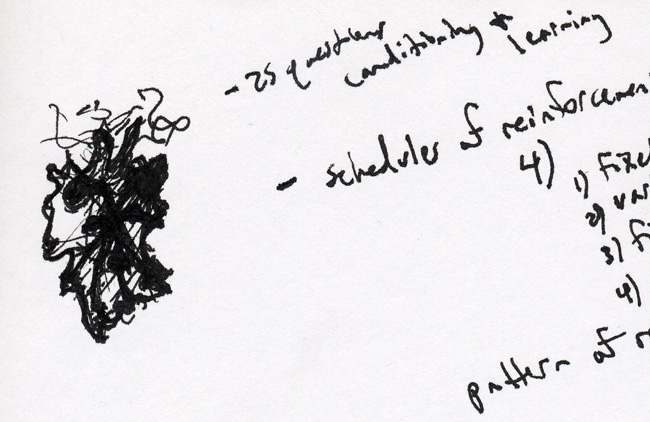 - 25 questions
conditioning + learning
- schedules of reinforcement
4)
1) fixed
2) var
3) fi
4)
pattern of re